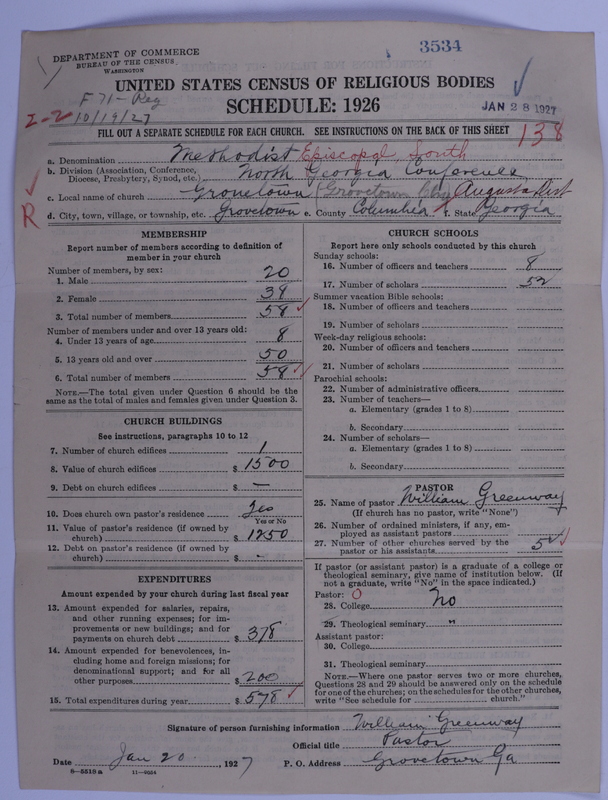 3534
DEPARTMENT OF COMMERCE
BUREAU OF THE CENSUS
WASHINGTON
F71-Reg
I-2 10/19/27
UNITED STATES CENSUS OF RELIGIOUS BODIES
SCHEDULE: 1926
JAN 28 1927
FILL OUT A SEPARATE SCHEDULE FOR EACH CHURCH. SEE INSTRUCTIONS ON THE BACK OF THIS SHEET
138
a. Denomination Methodist Episcopal, South
b. Division (Association, Conference, Diocese, Presbytery, Synod, etc.) North Georgia Conference
c. Local name of church Grovetown (Grovetown Augusta Dist
R
d. City, town, village, or township, etc. Grovetown e. County Columbia f. State Georgia
MEMBERSHIP
Report number of members according to definition of
member in your church
Number of members, by sex:
1. Male 20
2. Female 38
3. Total number of members 58
Number of members under and over 13 years old:
4. Under 13 years of age 8
5. 13 years old and over 50
6. Total number of members 58
NOTE.—The total given under Question 6 should be the
same as the total of males and females given under Question 3.
CHURCH BUILDINGS
See instructions, paragraphs 10 to 12
7. Number of church edifices 1
8. Value of church edifices $ 1500
9. Debt on church edifices $ —
10. Does church own pastor's residence Yes
Yes or No
11. Value of pastor's residence (if owned by
church) $ 1250
12. Debt on pastor's residence (if owned by
church) $ -
EXPENDITURES
Amount expended by your church during last fiscal year
13. Amount expended for salaries, repairs,
and other running expenses; for im-
provements or new buildings; and for
payments on church debt $ 378
14. Amount expended for benevolences, in-
cluding home and foreign missions; for
denominational support; and for all
other purposes $ 200
15. Total expenditures during year $ 578
CHURCH SCHOOLS
Report here only schools conducted by this church
Sunday schools:
16. Number of officers and teachers 8
17. Number of scholars 52
Summer vacation Bible schools:
18. Number of officers and teachers
19. Number of scholars
Week-day religious schools:
20. Number of officers and teachers
21. Number of scholars
Parochial schools:
22. Number of administrative officers
23. Number of teachers—
a. Elementary (grades 1 to 8)
b. Secondary
24. Number of scholars—
a. Elementary (grades 1 to 8)
b. Secondary
PASTOR
25. Name of pastor William Greenway
(If church has no pastor, write "None")
26. Number of ordained ministers, if any, em-
ployed as assistant pastors
27. Number of other churches served by the
pastor or his assistants 5
If pastor (or assistant pastor) is a graduate of a college or
theological seminary, give name of institution below. (If
not a graduate, write "No" in the space indicated.)
Pastor: O
28. College No
29. Theological seminary "
Assistant pastor:
30. College
31. Theological seminary
NOTE.—Where one pastor serves two or more churches,
Questions 28 and 29 should be answered only on the schedule
for one of the churches; on the schedules for the other churches,
write "See schedule for church."
Signature of person furnishing information William Greenway
Official title Pastor
Date Jan 20 1927 P. O. Address Grovetown Ga
8-5518a 11-9064